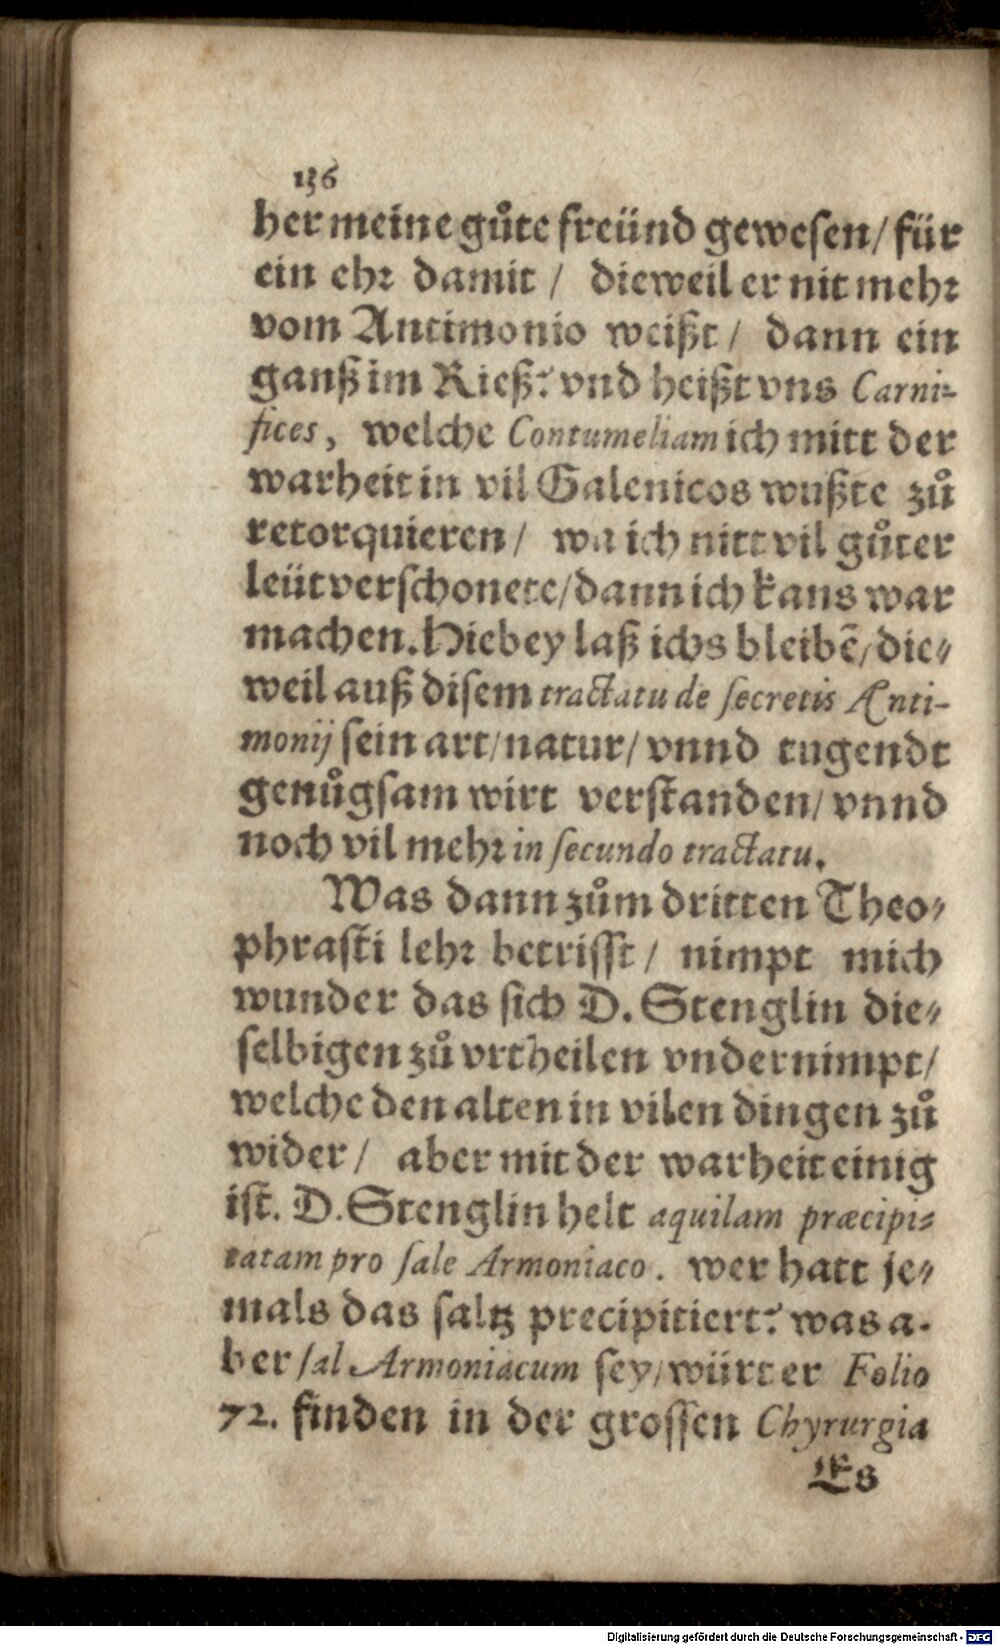 136
her meine gůte freünd gewesen/ für
ein ehr damit / dieweil er nit mehr
vom Antimonio weißt / dann ein
ganß im Rieß? vnd heißt vns Carni-
fices, welche Contumeliam ich mitt der
warheit in vil Galenicos wußte zů
retorquieren / wa ich nitt vil gůter
leüt verschonete/ dann ich kans war
machen. Hiebey laß ichs bleibẽ/ die-
weil auß disem tractatu de secretis Anti-
monij sein art/ natur/ vnnd tugendt
genůgsam wirt verstanden/ vnnd
noch vil mehr in secundo tractatu.
Was dann zům dritten Theo-
phrasti lehr betrifft / nimpt mich
wunder das sich D. Stenglin die-
selbigen zů vrtheilen vndernimpt/
welche den alten in vilen dingen zů
wider / aber mit der warheit einig
ist. D. Stenglin helt aquilam præcipi-
tatam pro sale Armoniaco. wer hatt je-
mals das saltz precipitiert? was a-
ber sal Armoniacum sey/ würt er Folio
72. finden in der grossen Chyrurgia
Es
Digitalisierung gefördert durch die Deutsche Forschungsgemeinschaft - DFG